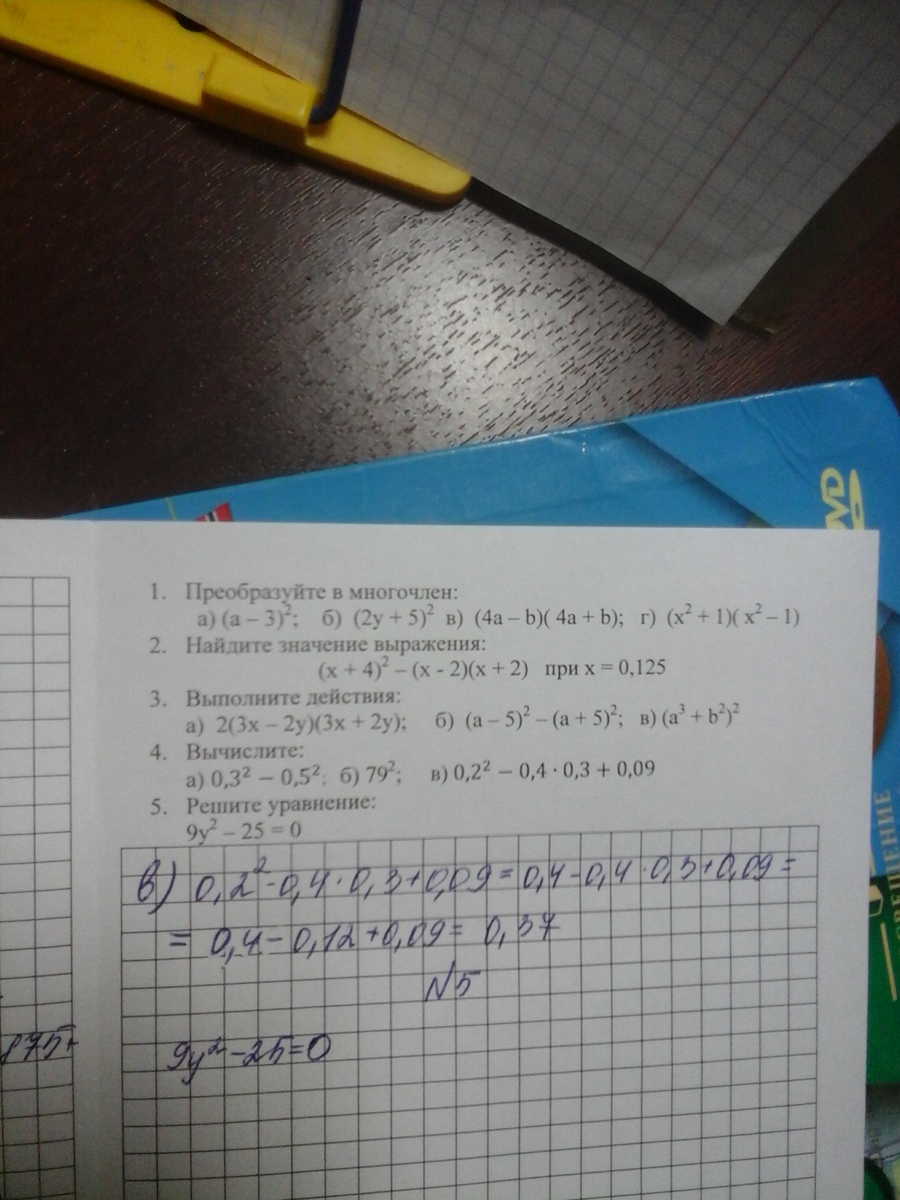 DVD
РЕШЕНИЕ
1. Преобразуйте в многочлен:
а) (a – 3)²; б) (2y + 5)² в) (4a – b)( 4a + b); г) (x² + 1)( x² – 1)
2. Найдите значение выражения:
(x + 4)² – (x - 2)(x + 2) при x = 0,125
3. Выполните действия:
а) 2(3x – 2y)(3x + 2y); б) (a – 5)² – (a + 5)²; в) (a³ + b²)²
4. Вычислите:
а) 0,3² – 0,5²; б) 79²; в) 0,2² – 0,4 · 0,3 + 0,09
5. Решите уравнение:
9y² – 25 = 0
в) 0,2² - 0,4 · 0,3 + 0,09 = 0,4 - 0,4 · 0,3 + 0,09 =
= 0,4 - 0,12 + 0,09 = 0,37
N5
875+
9y² - 25 = 0